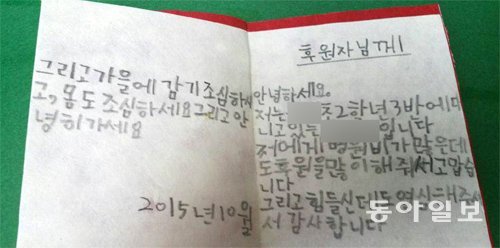 후원자님께
안녕하세요.
저는 초2학년3반에다
니고있는 입니다
저에게 병원비가많은데
도후원을많이해줘서고맙습
니다
그리고힘들신데도열심해주
서감사합니다
그리고가을에 감기조심하시
고,몸도 조심하세요그리고안
녕히가세요
2015년10월
동아일보